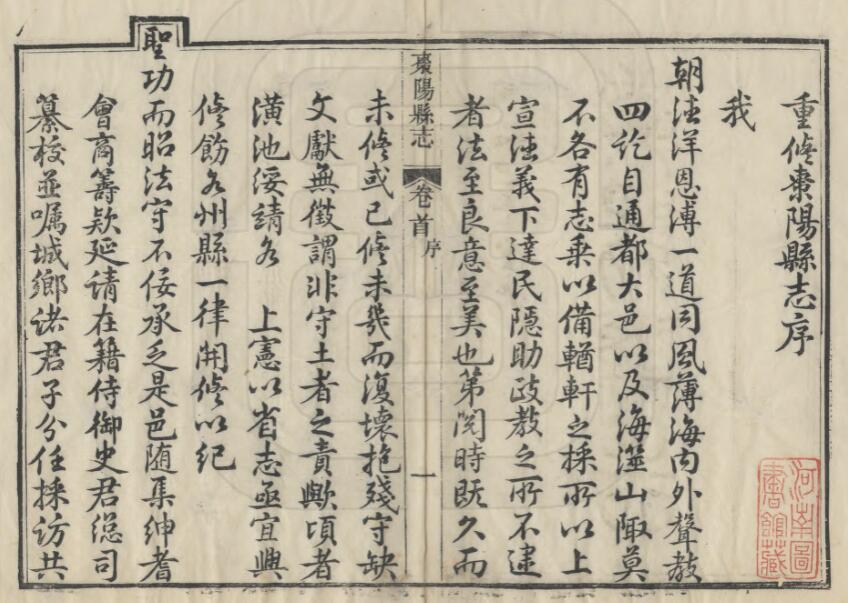 重修棗陽縣志序
我
朝德洋恩溥一道同風薄海內外聲教
四訖自通都大邑以及海澨山陬莫
不各有志乘以備輶軒之採所以上
宣德義下達民隱助政教之所不逮
者法至良意至美也第閱時既久而
棗陽縣志
卷首
序
一
未修或已修未幾而復壞抱殘守缺
文獻無徵謂非守土者之責歟頃者
潢池綏靖各 上憲以省志亟宜興
修飭各州縣一律開修以紀
聖功而昭法守不佞承乏是邑随集紳耆
會商籌欵延請在籍侍御史君總司
纂校並嘱城鄉诸君子分任採访共
河南圖書館藏